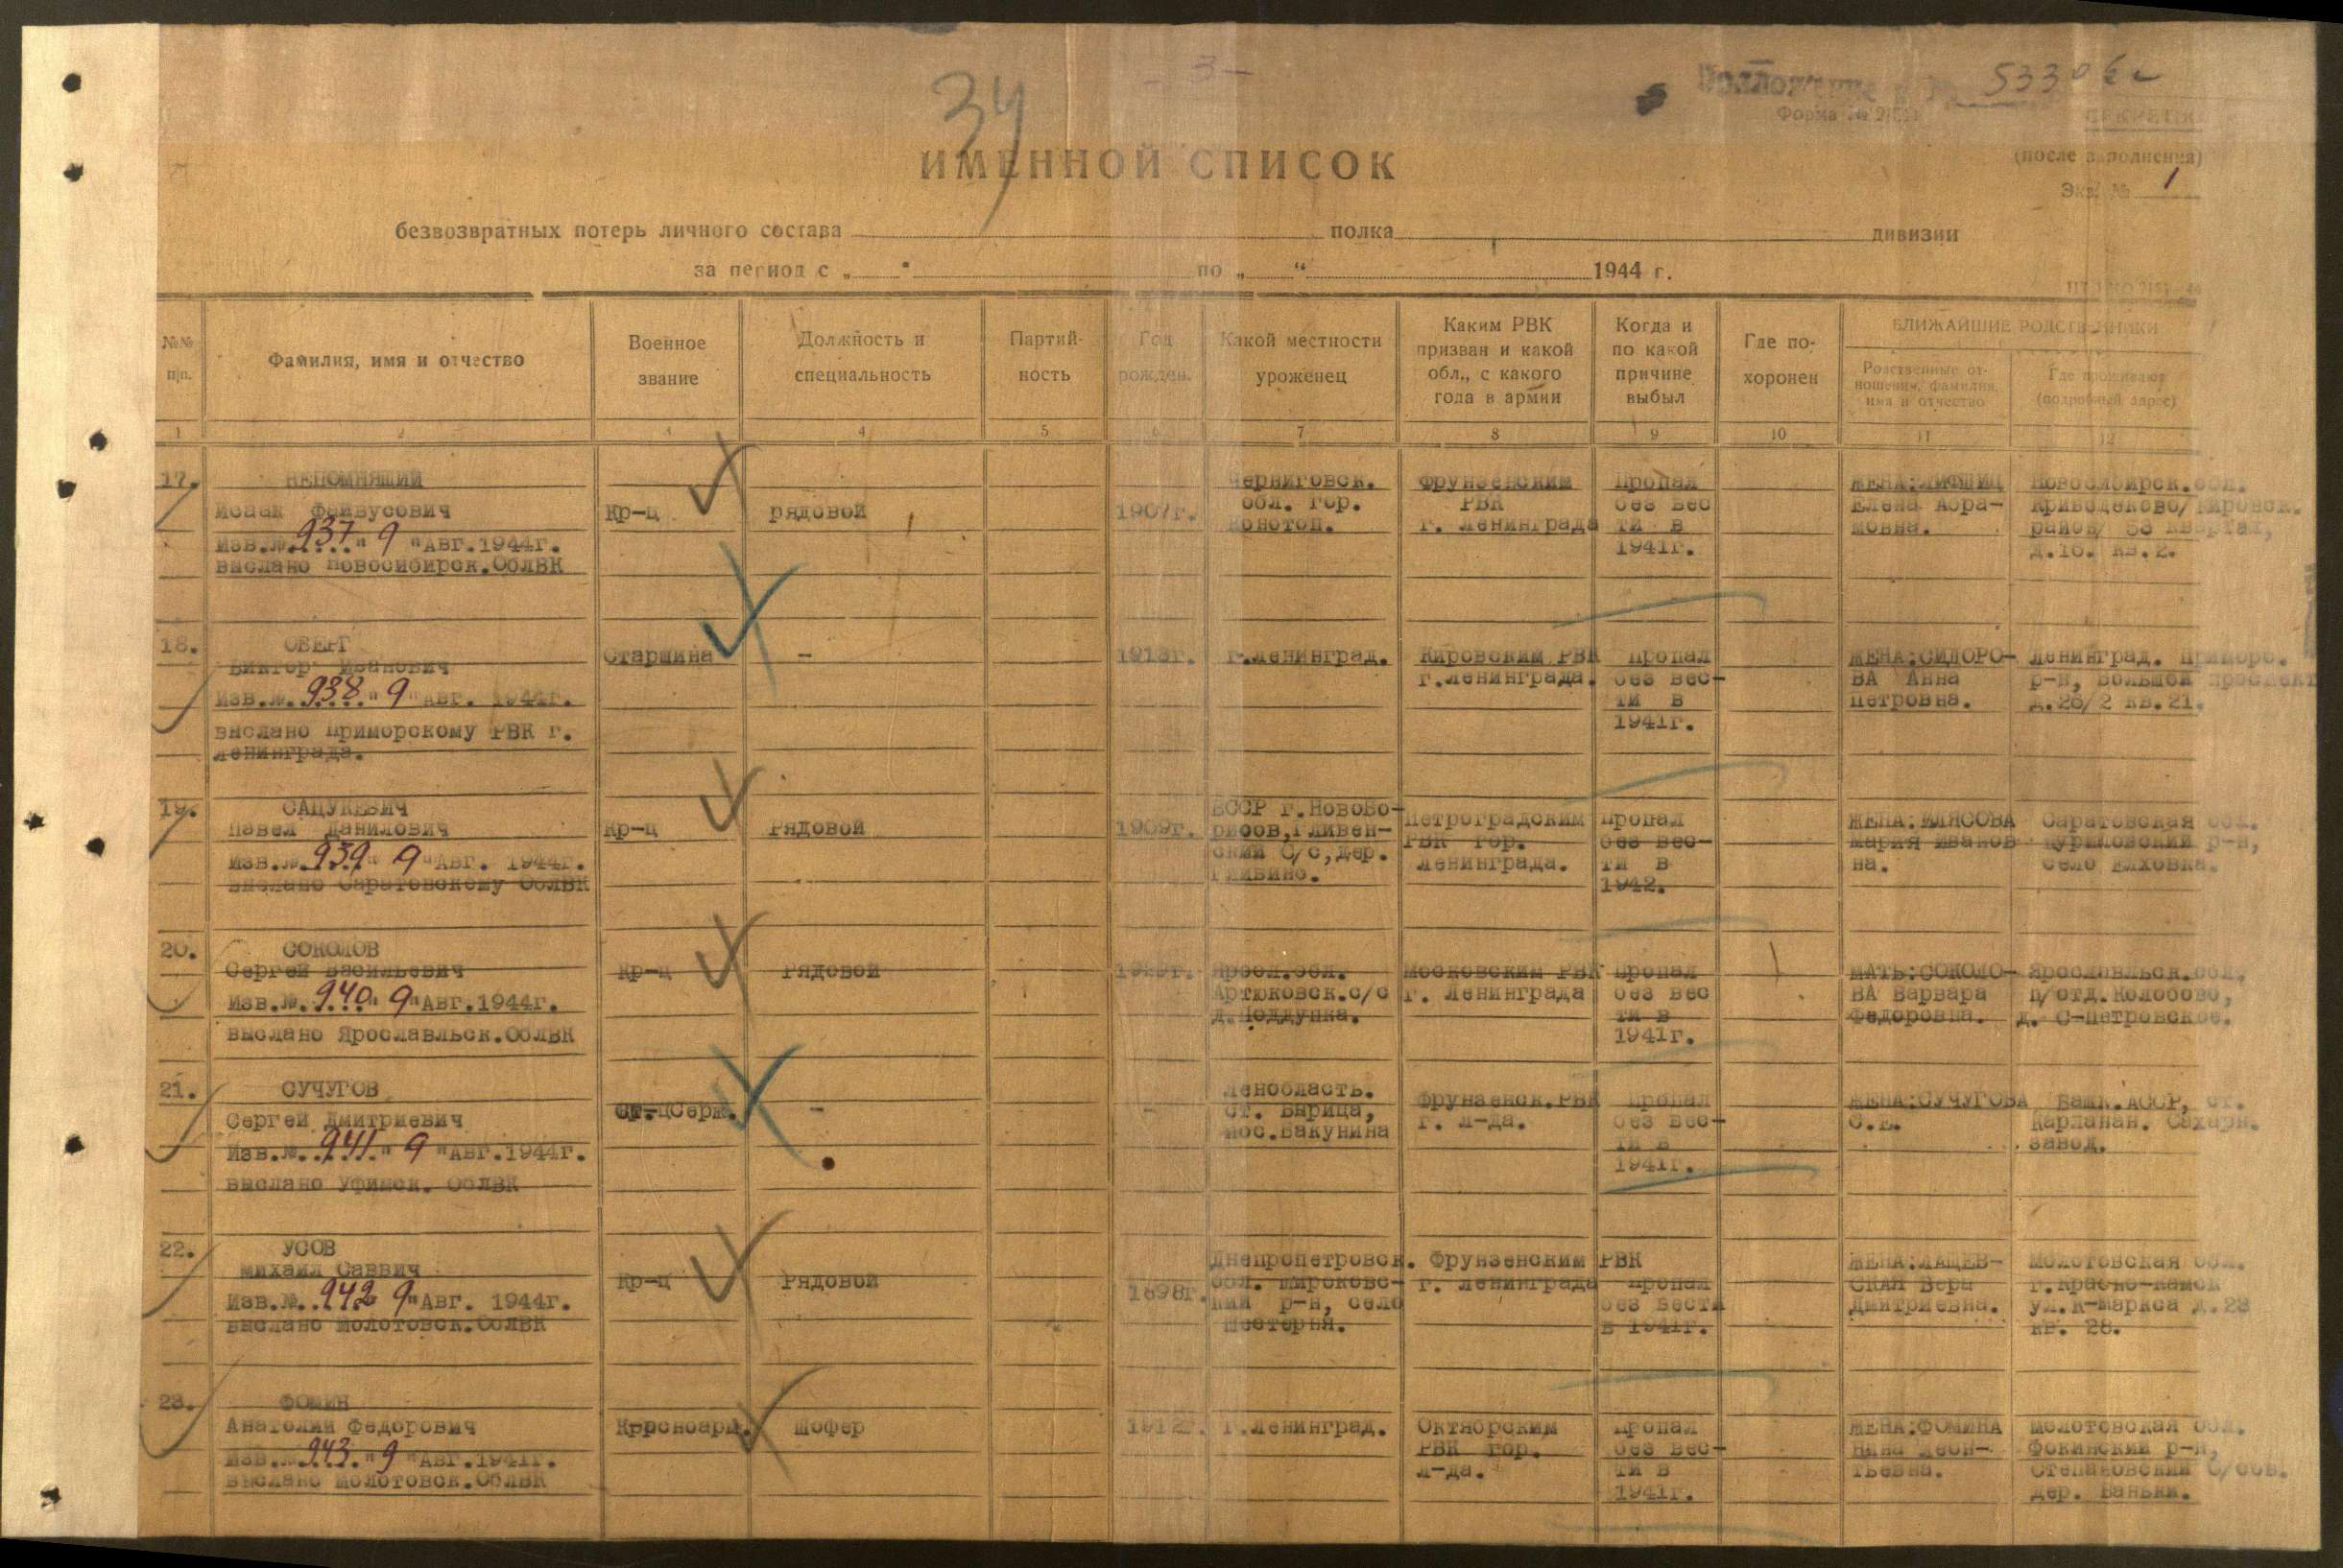 - 3 -
34
Приложение 5330
Форма №
СЕКРЕТНО
(после заполнения)
Экз. № 1
ИМЕННОЙ СПИСОК
безвозвратных потерь личного состава полка дивизии
за период с „ “ по „ “ 1944 г.
№№ п/п.
Фамилия, имя и отчество
Военное звание
Должность и специальность
Партий- ность
Год рожден.
Какой местности уроженец
Каким РВК призван и какой обл., с какого года в армии
Когда и по какой причине выбыл
Где по- хоронен
БЛИЖАЙШИЕ РОДСТВЕННИКИ
Родственные от- ношения, фамилия, имя и отчество
Где проживают (подробный адрес)
1 2 3 4 5 6 7 8 9 10 11 12
17. НЕПОМНЯЩИЙ
Исаак Файвусович
Изв.№.937." 9 "Авг.1944г.
выслано Новосибирск.ОблВК
Кр-ц
рядовой
1907г.
Черниговск.
обл. гор.
Конотоп.
Фрунзенским
РВК
г. Ленинграда
Пропал
без вес
ти в
1941г.
ЖЕНА:ЛИФШИЦ
Елена Абра-
мовна.
Новосибирск.обл.
Кривощеково/Кировск.
район/ 53 квартал,
д.10. кв.2.
18. ОБЕРГ
Виктор Иванович
Изв.№.938." 9 "Авг. 1944г.
выслано Приморскому РВК г.
Ленинграда.
Старшина
-
1913г.
г.Ленинград.
Кировским РВК
г.Ленинграда.
Пропал
без вес-
ти в
1941г.
ЖЕНА:СИДОРО-
ВА Анна
Петровна.
Ленинград. Приморс.
р-н, Большой проспект
д.28/2 кв.21.
19. САЦУКЕВИЧ
Павел Данилович
Изв.№.939" 9 "Авг. 1944г.
выслано Саратовскому ОблВК
Кр-ц
Рядовой
1909г.
БССР г.Новобо-
рисов,Гливен-
ский с/с,дер.
Гливино.
Петроградским
РВК гор.
Ленинграда.
Пропал
без вес-
ти в
1942.
ЖЕНА:ИЛЯСОВА
Мария Иванов
на.
Саратовская обл.
Куриловский р-н,
село Елховка.
20. СОКОЛОВ
Сергей Васильевич
Изв.№.940" 9"Авг.1944г.
выслано Ярославльск.ОблВК
Кр-ц
Рядовой
Яросл.обл.
Артюковск.с/с
д.Поддупка.
Московским РВК
г. Ленинграда
Пропал
без вес
ти в
1941г.
МАТЬ:СОКОЛО-
ВА Варвара
Федоровна.
Ярославльск.обл,
п/отд.Колобово,
д. С-Петровское.
21. СУЧУГОВ
Сергей Дмитриевич
Изв.№.941." 9 "Авг.1944г.
выслано Уфимск. ОблВК
Серж.
-
-
Ленобласть.
ст. Вырица,
пос.Бакунина
Фрунзенск.РВК
г. Л-да.
Пропал
без вес-
ти в
1941г.
ЖЕНА:СУЧУГОВА
С.Е.
Башк.АССР, ст.
Карланан. Сахарн.
завод.
22. УСОВ
Михаил Саввич
Изв.№.942 9"Авг. 1944г.
выслано Молотовск.ОблВК
Кр-ц
Рядовой
1898г.
Днепропетровск.
обл. Широковс-
кий р-н, село
Шестерня.
Фрунзенским РВК
г. Ленинграда
Пропал
без вести
в 1941г.
ЖЕНА:ЛАЩЕВ-
СКАЯ Вера
Дмитриевна.
Молотовская обл.
г.Красно-камск
ул.К-Маркса д.23
кв. 28.
23. ФОМИН
Анатолий Федорович
Изв.№943." 9 "Авг.1941г.
выслано Молотовск.ОблВК
Красноарм.
Шофер
1912г.
г.Ленинград.
Октябрским
РВК гор.
Л-да.
Пропал
без вес-
ти в
1941г.
ЖЕНА:ФОМИНА
Нина Леон-
тьевна.
Молотовская обл.
Фокинский р-н,
Степановский с/сов.
дер. Ваньки.